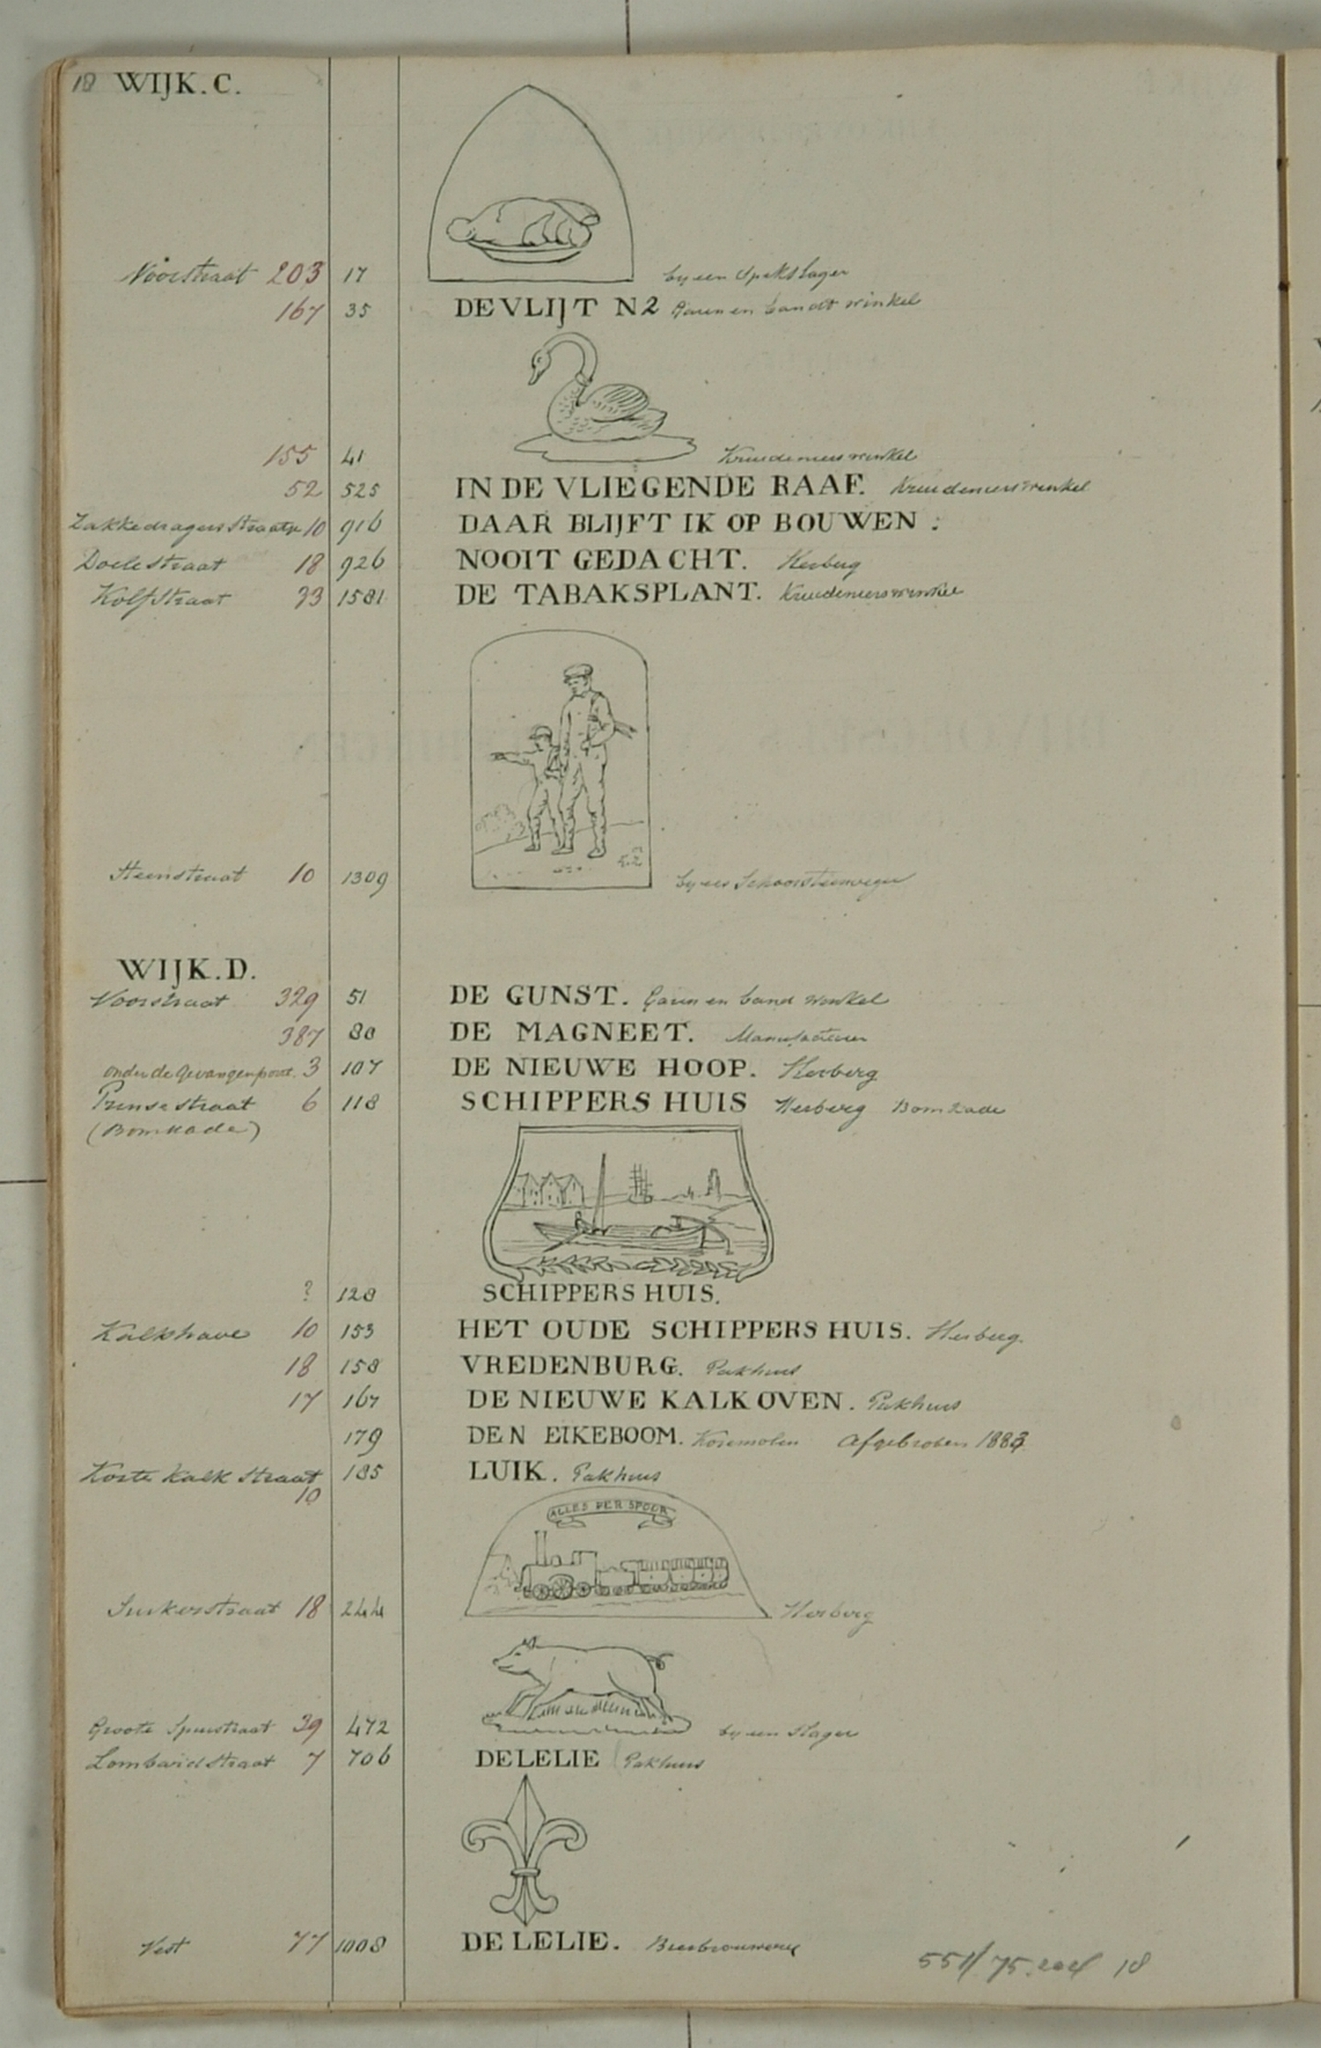 18 WIJK. C.
Voorstraat 203 17 by een Spekslager
167 35 DE VLIJT N2 Garen en bandt winkel
155 41 Kruideniers winkel
52 525 IN DE VLIEGENDE RAAF. Kruidenierswinkel
Zakkedragers Straatje 10 916 DAAR BLIJFT IK OP BOUWEN :
Doelestraat 18 926 NOOIT GEDACHT. Herberg
Kolfstraat 33 1581 DE TABAKSPLANT. Kruidenierswinkel
Steenstraat 10 1309 by een Schoorsteenveger
WIJK. D.
Voorstraat 329 51 DE GUNST. Garen en band winkel
387 80 DE MAGNEET. Manufacturen
onder de Gevangenpoort. 3 107 DE NIEUWE HOOP. Herberg
Prinsestraat 6 118 SCHIPPERS HUIS Herberg Bomkade
(Bomkade)
? 128 SCHIPPERS HUIS.
Kalkhave 10 153 HET OUDE SCHIPPERS HUIS. Herberg.
18 158 VREDENBURG. Pakhuis
17 167 DE NIEUWE KALKOVEN. Pakhuis
179 DEN EIKEBOOM. Korenmolen Afgebroken 1883
Korte Kalk Straat 185 LUIK. Pakhuis
10
ALLES PER SPOOR
Suikerstraat 18 244 Herberg
Groote Spuistraat 39 472 by een Slager
Lombardstraat 7 706 DE LELIE Pakhuis
Vest 77 1008 DE LELIE. Bierbrouwery
551/75.204 18